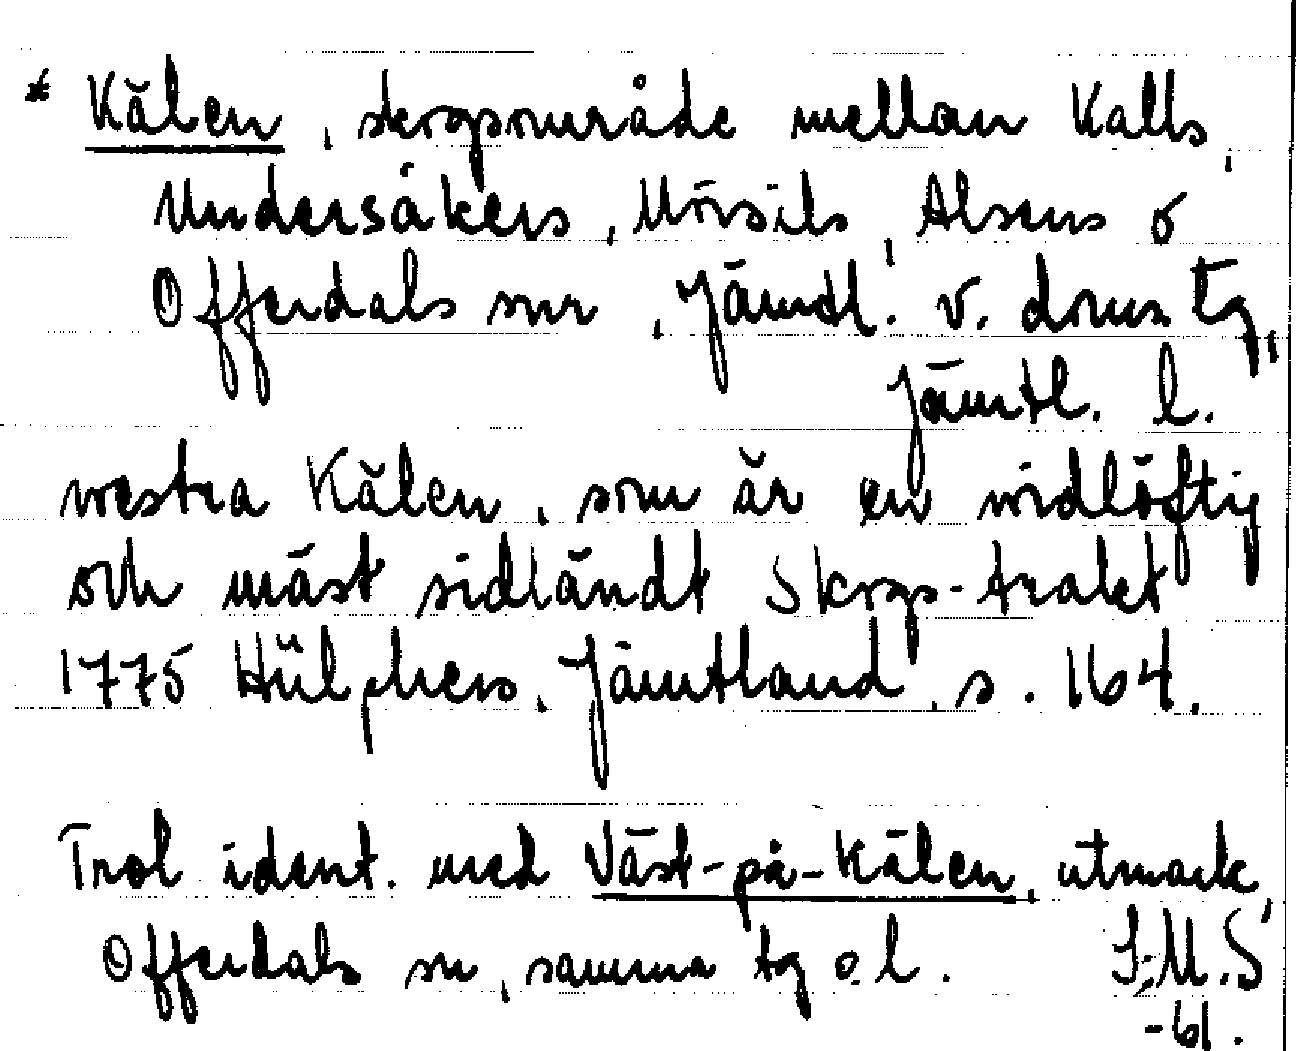 * Kälen, skogsområde mellan Kalls,
Undersåkers, Mörsils, Alsens o
Offerdals snr, Jämtl. v. doms. tg,
Jämtl. l.
westra Kälen, som är en widlöftig
och mäst sidländt Skogs-trakt
1775 Hülphers, Jämtland, s. 164.
Trol ident. med Väst-på-Kälen, utmark,
Offerdals sn, samma tg o. l. I.M.S
-61.